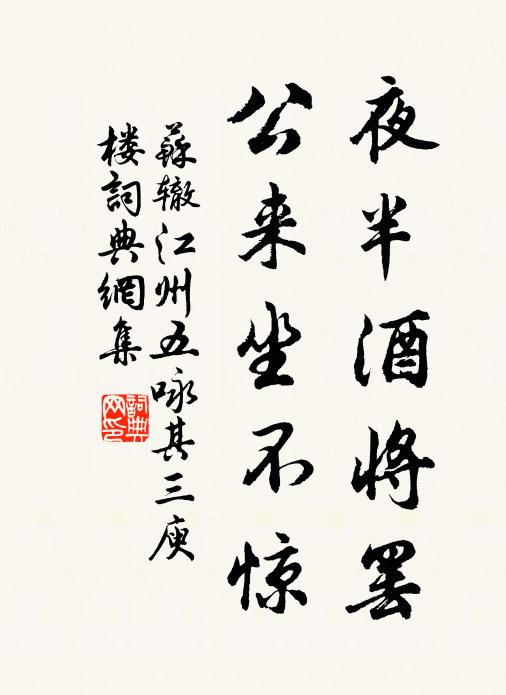 夜半酒将罢
公来坐不惊
蘇辙江州五咏其三庾
楼詞典網集
詞典
网印